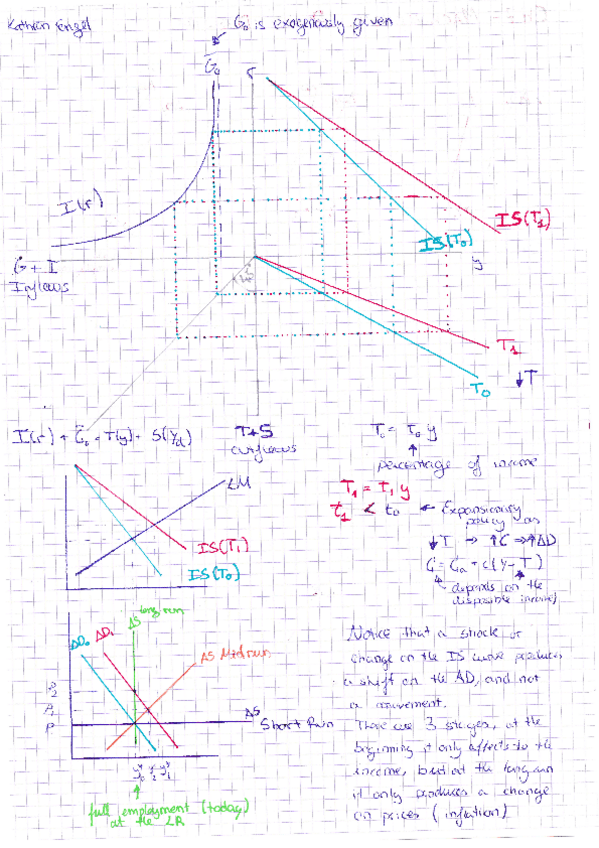 Kathrin Engel
G₀ is exogenously given
G̅₀
r
I(r)
IS(T₁)
IS(T₀)
y
G + I
Inflows
45°
T₁
T₀
↓T
I(r) + G̅₀ = T(y) + S(Yd)
T+S
outflows
T₀ = T₀ y
percentage of income
T₁ = T₁ y
t₁ < t₀ ← Expansionary
policy as
↓T → ↑C → ↑AD
C = C₀ + c(y-T)
depends on the
disposable income
LM
IS(T₁)
IS(T₀)
AS long run
AD₀ AD₁
AS Med run
P₂
P₁
P
AS
Short Run
full employment (today)
at the LR
Notice that a shock or
change on the IS curve produces
a shift on the AD, and not
a movement.
There are 3 stages, at the
beginning it only affects to the
income, but at the long run
it only produces a change
on prices (inflation)